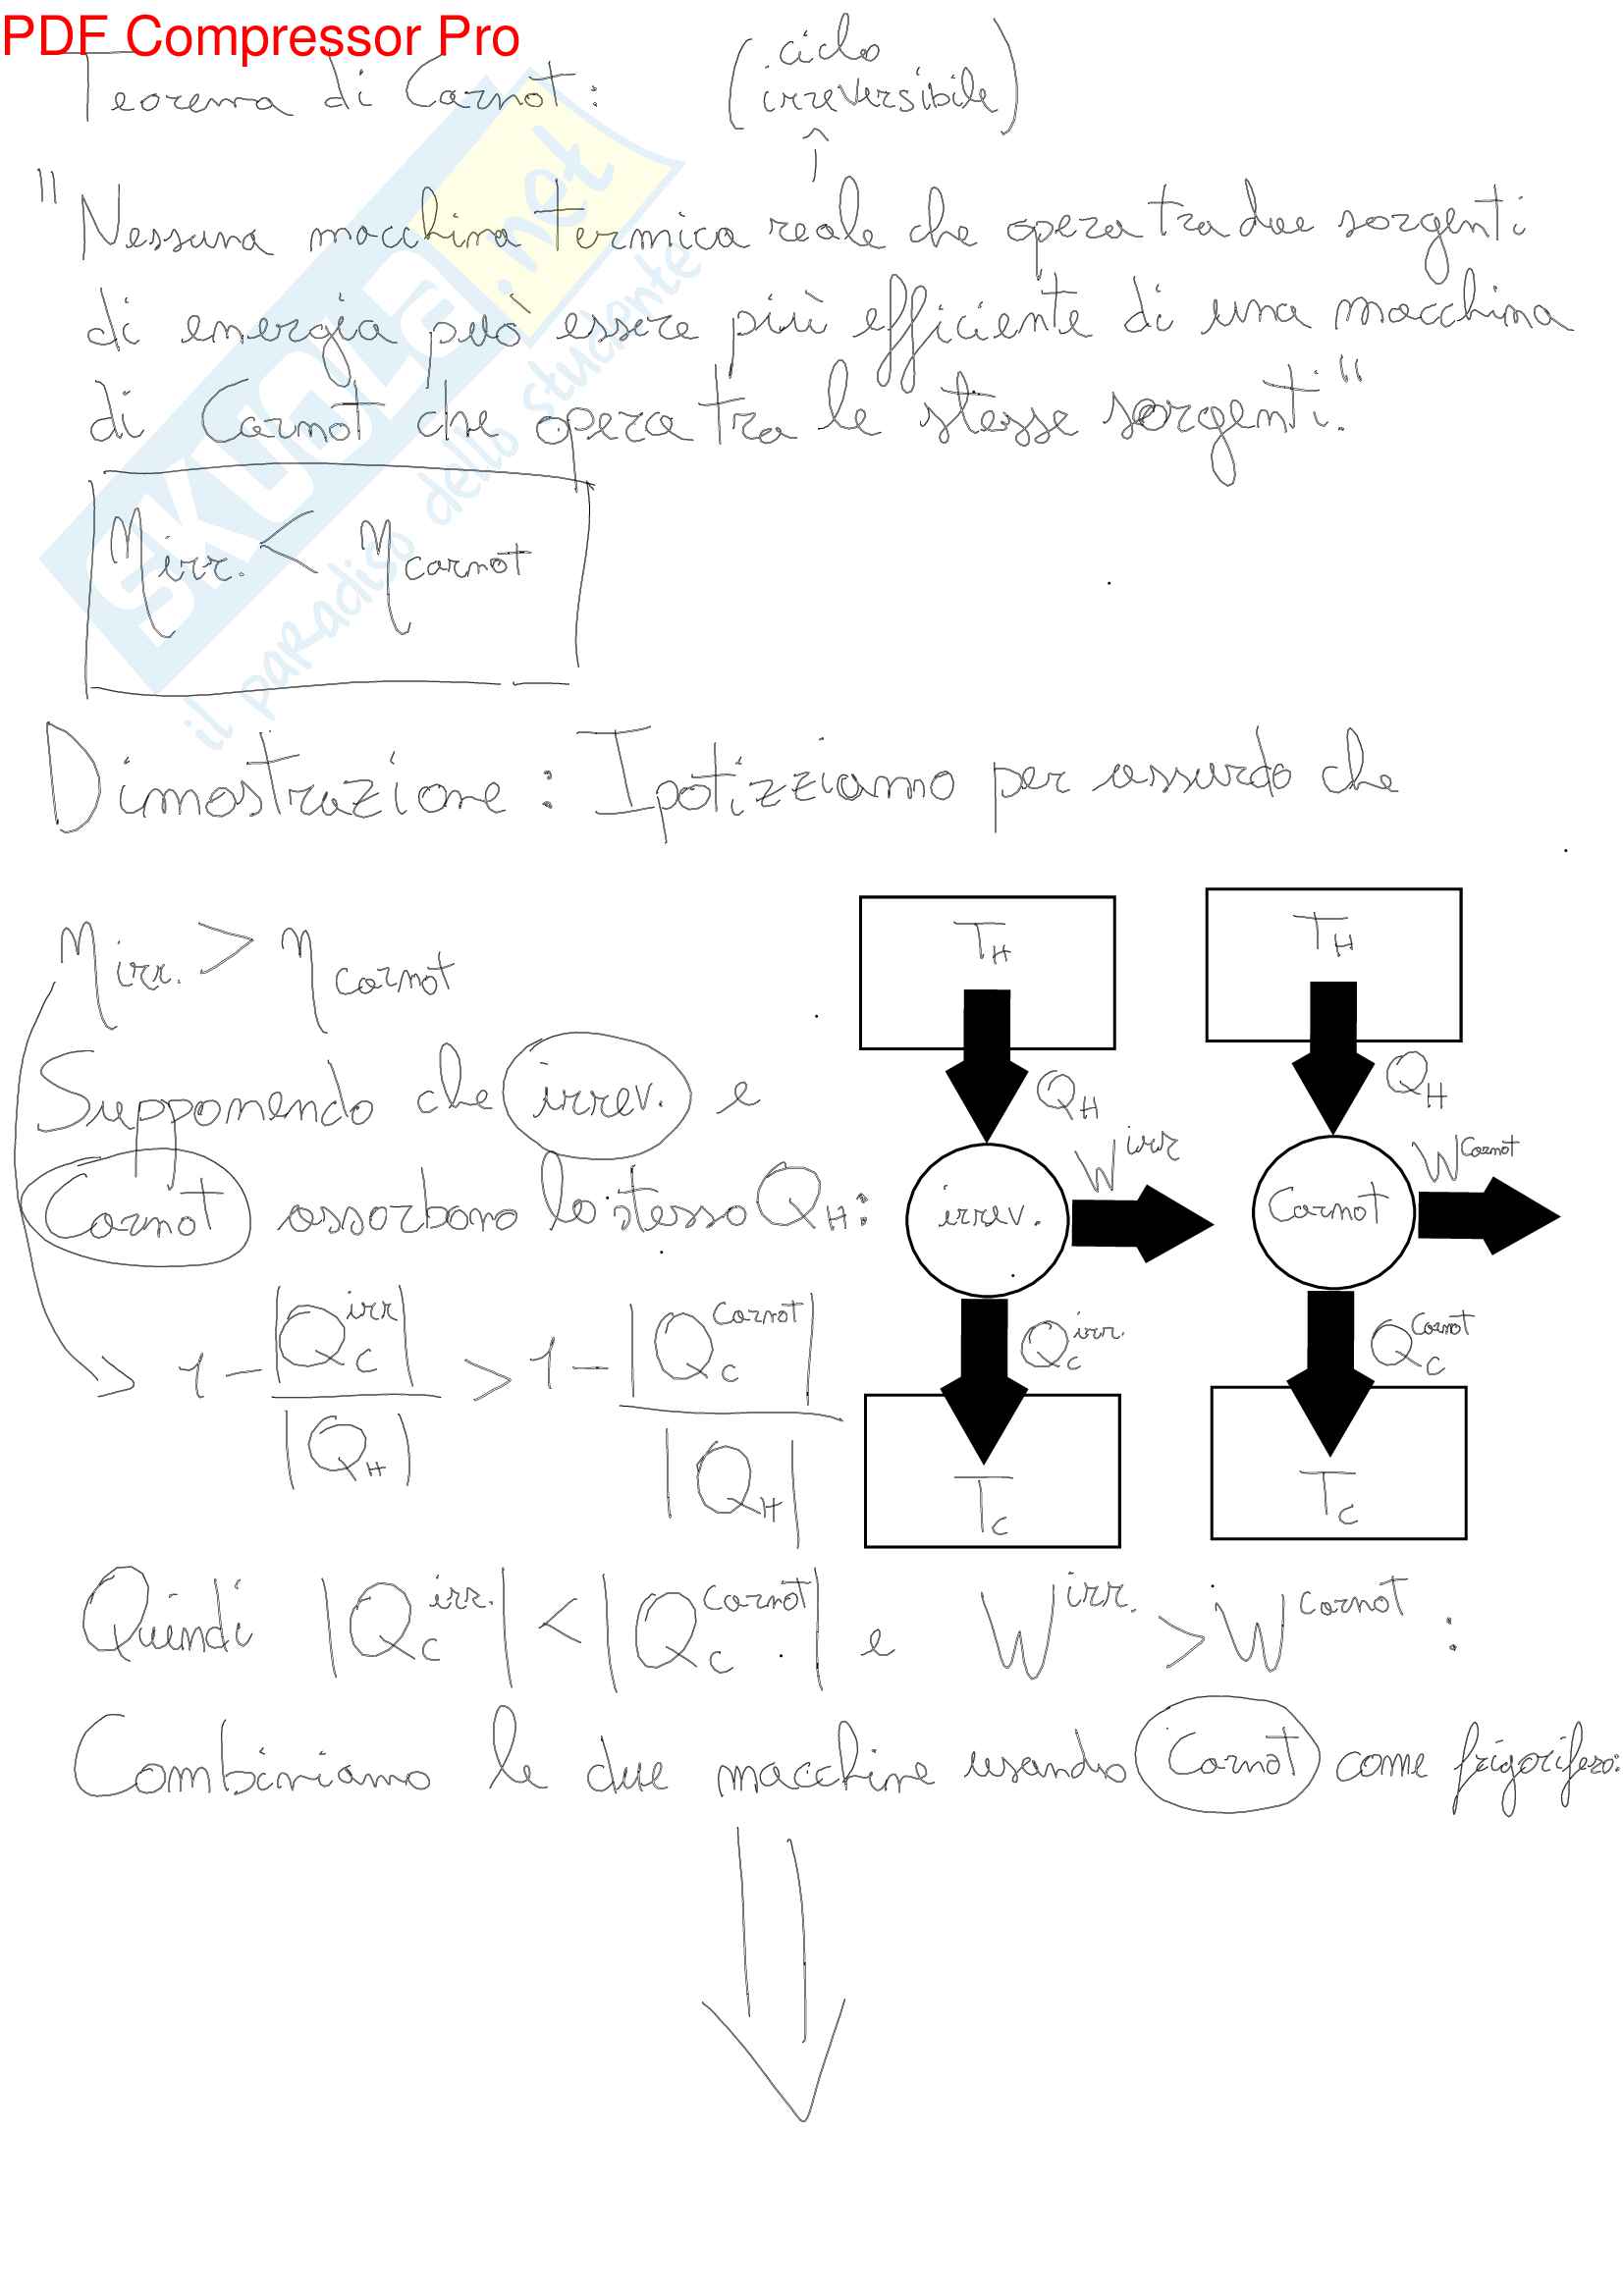 PDF Compressor Pro
Teorema di Carnot: (ciclo
irreversibile)
"Nessuna macchina termica reale che opera tra due sorgenti
di energia può essere più efficiente di una macchina
di Carnot che opera tra le stesse sorgenti."
η irr. < η carnot
Dimostrazione: Ipotizziamo per assurdo che
η irr. > η carnot
Supponendo che irrev. e
Carnot assorbono lo stesso Q_H:
1 - |Q_C^irr| / |Q_H| > 1 - |Q_C^Carnot| / |Q_H|
T_H
Q_H
irrev.
W^irr
Q_C^irr.
T_C
T_H
Q_H
Carnot
W^Carnot
Q_C^Carnot
T_C
Quindi |Q_C^irr.| < |Q_C^Carnot| e W^irr. > W^carnot :
Combiniamo le due macchine usando Carnot come frigorifero:
SKUOLA.net
il paradiso dello studente